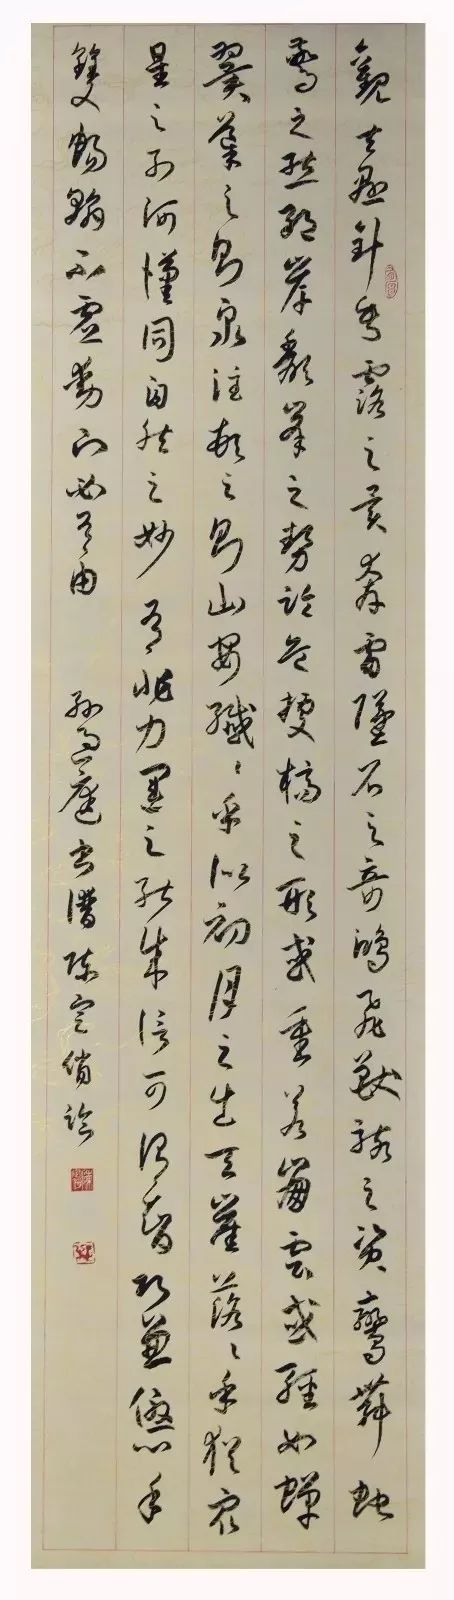 觀夫懸針垂露之異奔雷墜石之奇鴻飛獸駭之資鸞舞蛇
驚之態絕岸頹峯之勢臨危據槁之形或重若崩雲或輕如蟬
翼導之則泉注頓之則山安纖〻乎似初月之出天崖落〻乎猶眾
星之列河漢同自然之妙有非力運之能成信可謂智巧兼優心手
雙暢翰不虛動下必有由 孫過庭書譜